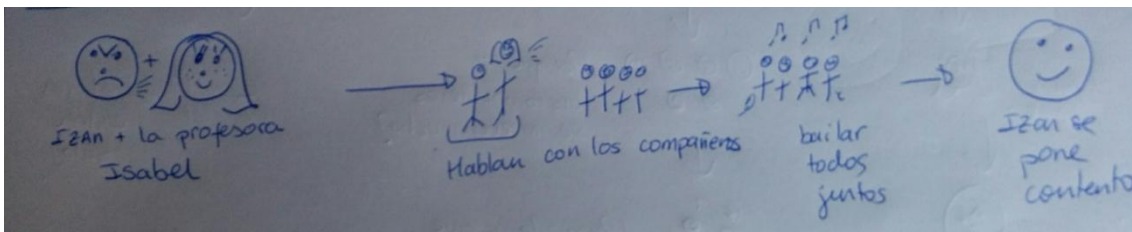 IZAn + la profesora
Isabel
Hablan con los compañeros
bailar
todos
juntos
Izan se
pone
contento